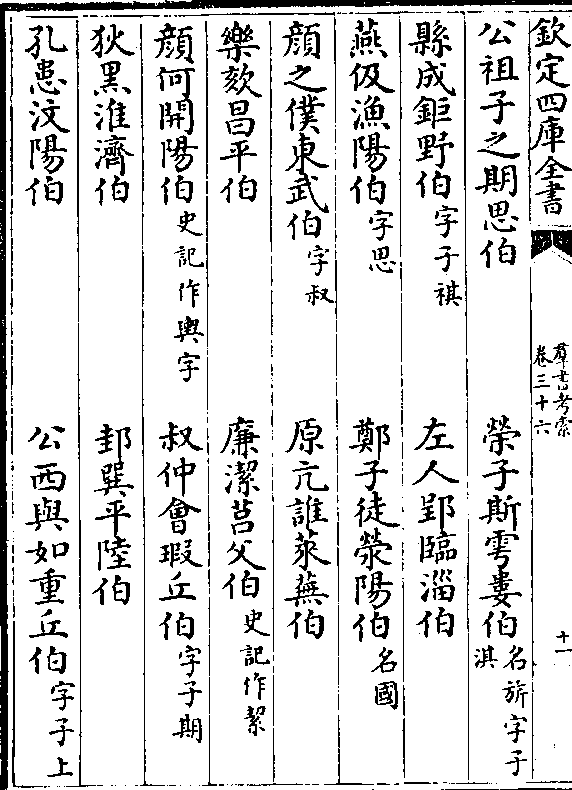 欽定四庫全書
羣書考索
卷三十六
十一
公祖子之期思伯　榮子斯雩婁伯名旂字子淇
縣成鉅野伯字子祺　左人郢臨淄伯
燕伋漁陽伯字思　鄭子徒滎陽伯名國
顏之僕東武伯字叔　原亢誰萊蕪伯
樂欬昌平伯　廉潔莒父伯史記作絜
顏何開陽伯史記作輿字　叔仲會瑕丘伯字子期
狄黑淮濟伯　邽巽平陸伯
孔患汶陽伯　公西與如重丘伯字子上